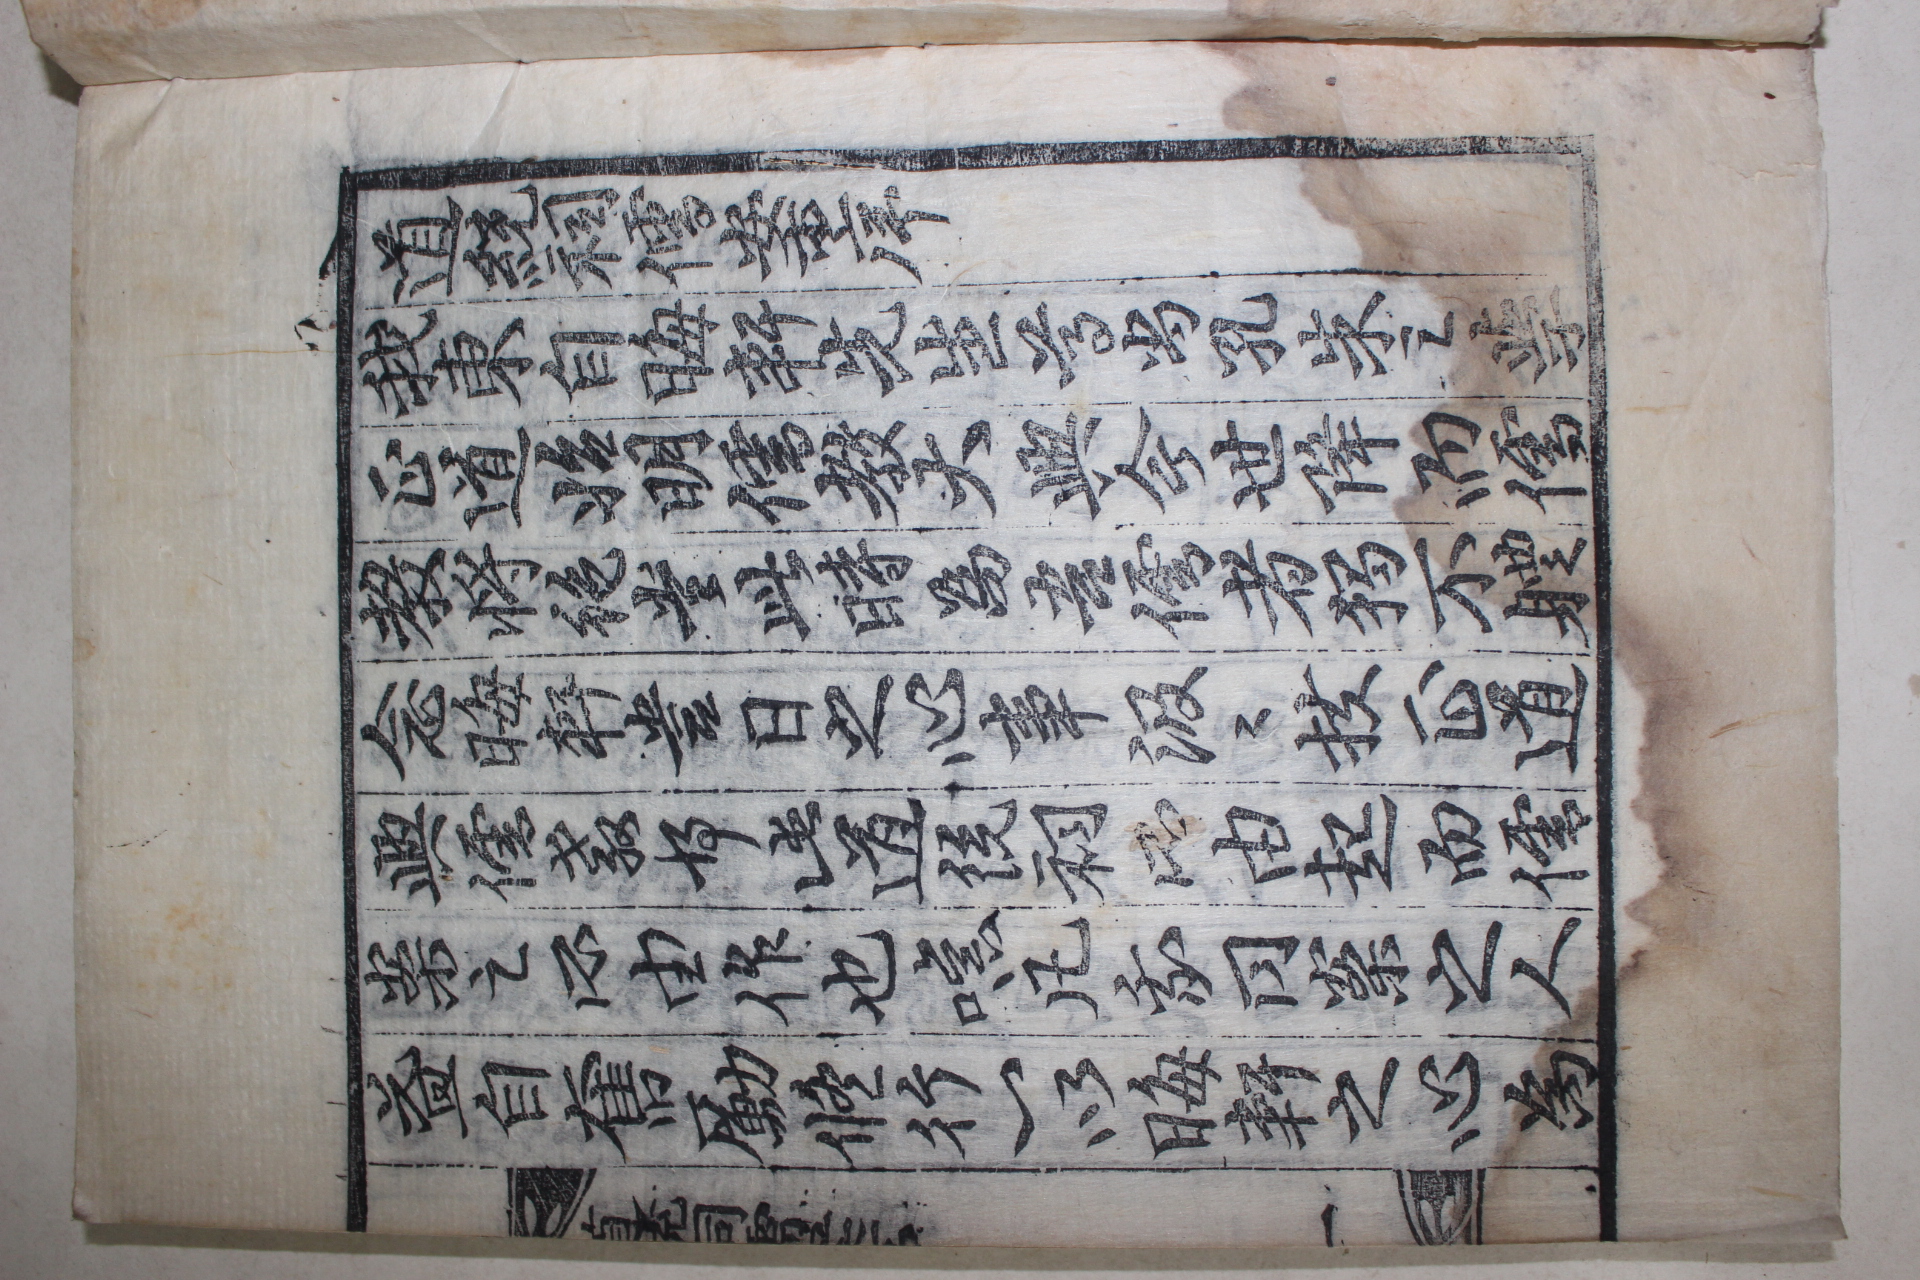 道統祠儒案序
我東自晦軒先生尊尚孔朱之學
正道始明儒教大興今世降而儒
教將絶當此時為吾儒者獨不體
念晦軒當日之心事汲〻扶正道
興儒教乎此道統祠所由起而儒
案之所由作也噫凡我同案之人
益自奮勵修行一以晦軒之心為
道統祠儒案序 一